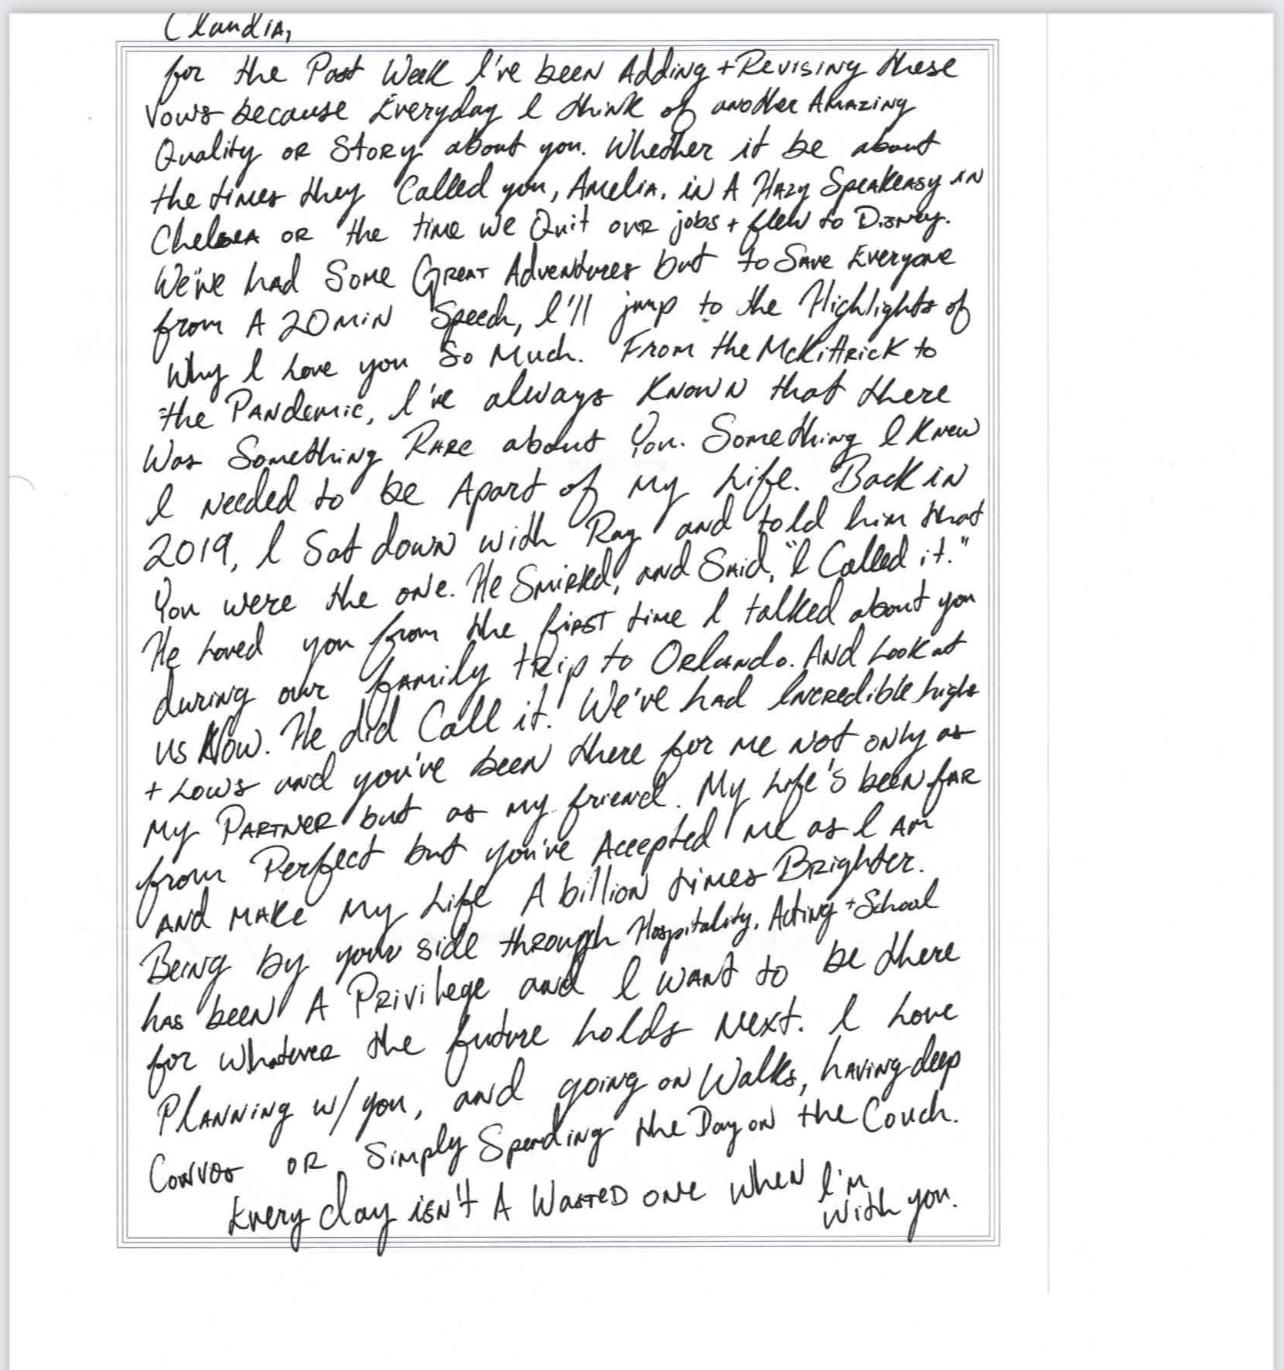 Claudia,
for the Past Week I've been Adding + Revising these
Vows because Everyday I think of another Amazing
Quality or Story about you. Whether it be about
the times they Called you, Amelia, in A Hazy Speakeasy in
Chelsea or the time we Quit our jobs + flew to Disney.
We've had Some Great Adventures but to Save Everyone
from A 20 min Speech, I'll jump to the Highlights of
Why I Love you So Much. From the McKittrick to
the Pandemic, I've always Known that there
Was Something Rare about You. Something I Knew
I needed to be Apart of My Life. Back in
2019, I Sat down with Ray and told him that
You were the one. He Smirked, and Said, "I Called it."
He Loved you from the first time I talked about you
during our family trip to Orlando. And Look at
us Now. He did Call it! We've had Incredible highs
+ Lows and you've been there for me not only as
My Partner but as my friend. My Life's been far
from Perfect but you've Accepted Me as I Am
and make My Life A billion times Brighter.
Being by your side through Hospitality, Acting + School
has been A Privilege and I want to be there
for whatever the future holds Next. I Love
Planning w/ you, and going on Walks, having deep
Convos or Simply Spending the Day on the Couch.
Every day isn't A Wasted one when I'm
with you.